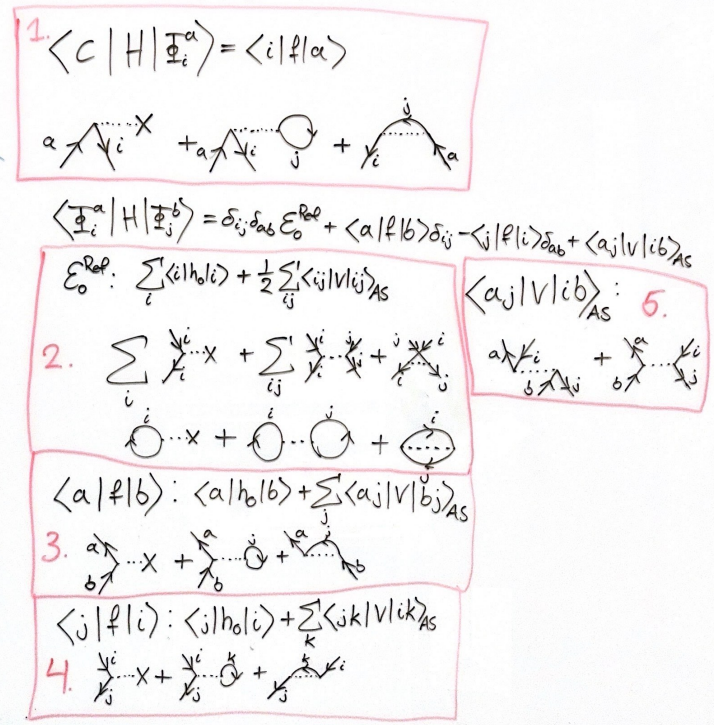 1.
⟨C|H|Φᵢᵃ⟩ = ⟨i|f|a⟩
a i ···X + a i ··· j + j i a
⟨Φᵢᵃ|H|Φⱼᵇ⟩ = δᵢⱼδₐᵦ ℰ₀ᴿᵉᶠ + ⟨a|f|b⟩δᵢⱼ - ⟨j|f|i⟩δₐᵦ + ⟨aj|v|ib⟩AS
ℰ₀ᴿᵉᶠ: Σᵢ⟨i|h₀|i⟩ + ½ Σᵢⱼ⟨ij|v|ij⟩AS
2. Σᵢ i i ···X + Σᵢⱼ i i ··· j j + j i i j
i ···X + i ··· j + i j
⟨aj|v|ib⟩AS: 5.
a i ··· b j + a b ··· i j
⟨a|f|b⟩: ⟨a|h₀|b⟩ + Σⱼ⟨aj|v|bj⟩AS
3. a b ···X + a b ··· j + a j b
⟨j|f|i⟩: ⟨j|h₀|i⟩ + Σₖ⟨jk|v|ik⟩AS
4. i j ···X + i j ··· k + j k i